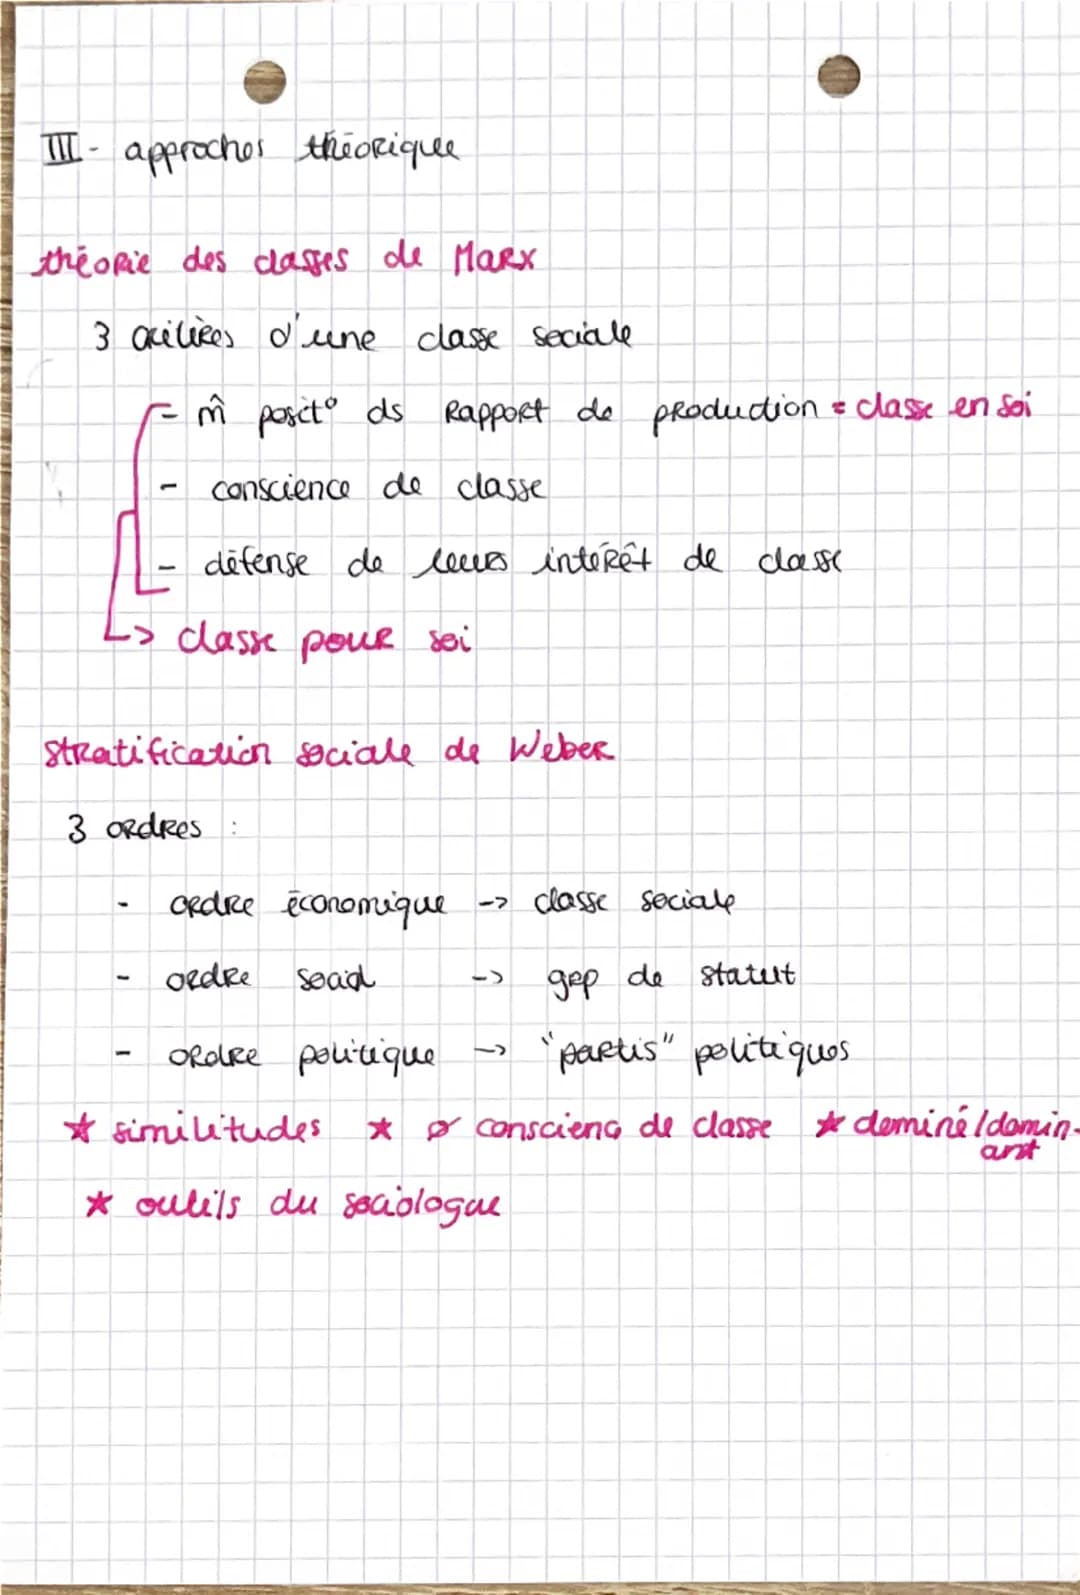 III - approches théorique
théorie des classes de Marx
3 critères d'une classe sociale
- m̂ posit° ds Rapport de production = classe en soi
- conscience de classe
- défense de leurs intérêt de classe
-> classe pour soi
Stratification sociale de Weber
3 ordres :
- ordre économique -> classe sociale
- ordre social -> grp de statut
- ordre politique -> "partis" politiques
* similitudes * ø conscience de classe * dominé/domin-
ant
* outils du sociologue